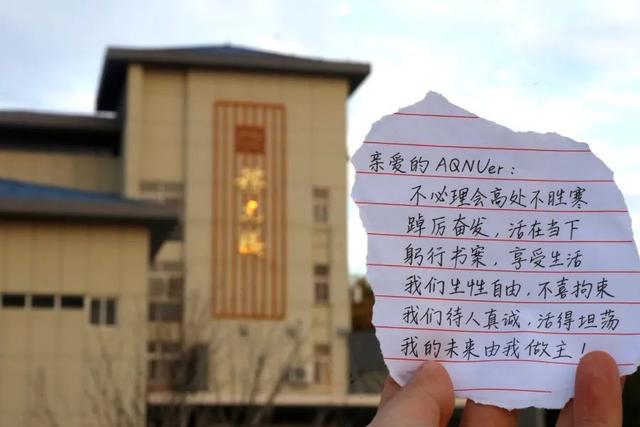 亲爱的 AQNUer:
不必理会高处不胜寒
踔厉奋发，活在当下
躬行书案，享受生活
我们生性自由，不喜拘束
我们待人真诚，活得坦荡
我的未来由我做主！